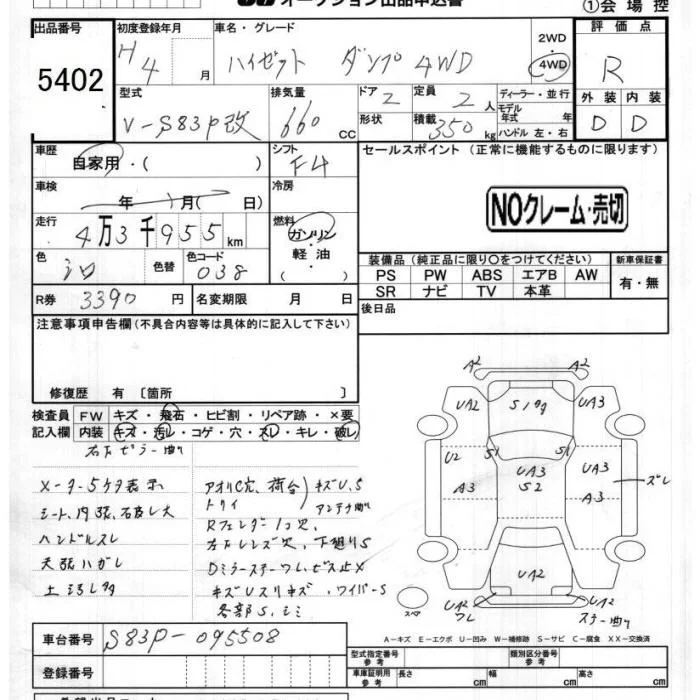 オークション出品申込書 ①会場控
出品番号 初度登録年月 車名・グレード 評価点
5402 H4 月 ハイゼット ダンプ 4WD 2WD・4WD R
型式 排気量 ドア 2 定員 2人 ディーラー・並行 外装 内装
V-S83P改 660 CC 形状 積載 350 kg モデル年式 年 ハンドル 左・右 D D
車歴 シフト セールスポイント (正常に機能するものに限ります)
自家用・( ) F4
車検 冷房
年 月( 日) NOクレーム・売切
走行 燃料
4万3千955km ガソリン・軽油
色 色替 色コード 装備品 (純正品に限り○をつけてください) 新車保証書
シロ 038 PS PW ABS エアB AW 有・無
SR ナビ TV 本革
R券 3390円 名変期限 月 日 後日品
注意事項申告欄 (不具合内容等は具体的に記入して下さい)
修復歴 有 〔箇所 〕
検査員 FW キズ・飛石・ヒビ割・リペア跡・×要
記入欄 内装 キズ・汚レ・コゲ・穴・スレ・キレ・破レ
右Fピラー曲り
メーター5ケタ表示 アオリC穴、荷台 キズU、S
シート、内張、石破レ大 トリイ アンテナ曲り
ハンドルスレ Rフェンダー1コ穴、
天張ハガレ 左右レンズ穴、下廻りS
Dミラーステーワレ、ビス止メ
キズUスリキズ、ワイパーS
各部S、シミ
A2 A2
UA2 Sノタタ UA3
U2 S1 S1
UA3 S2 UA3 ズレ
A3 A3
UA2
UA2 ワレ ステー曲り
スペア
A－キズ E－エクボ U－凹み W－補修跡 S－サビ C－腐食 XX－交換済
車台番号 S83P-095508
型式指定番号 参考 類別区分番号 参考
登録番号 車庫証明用 参考 長さ cm 幅 cm 高さ cm